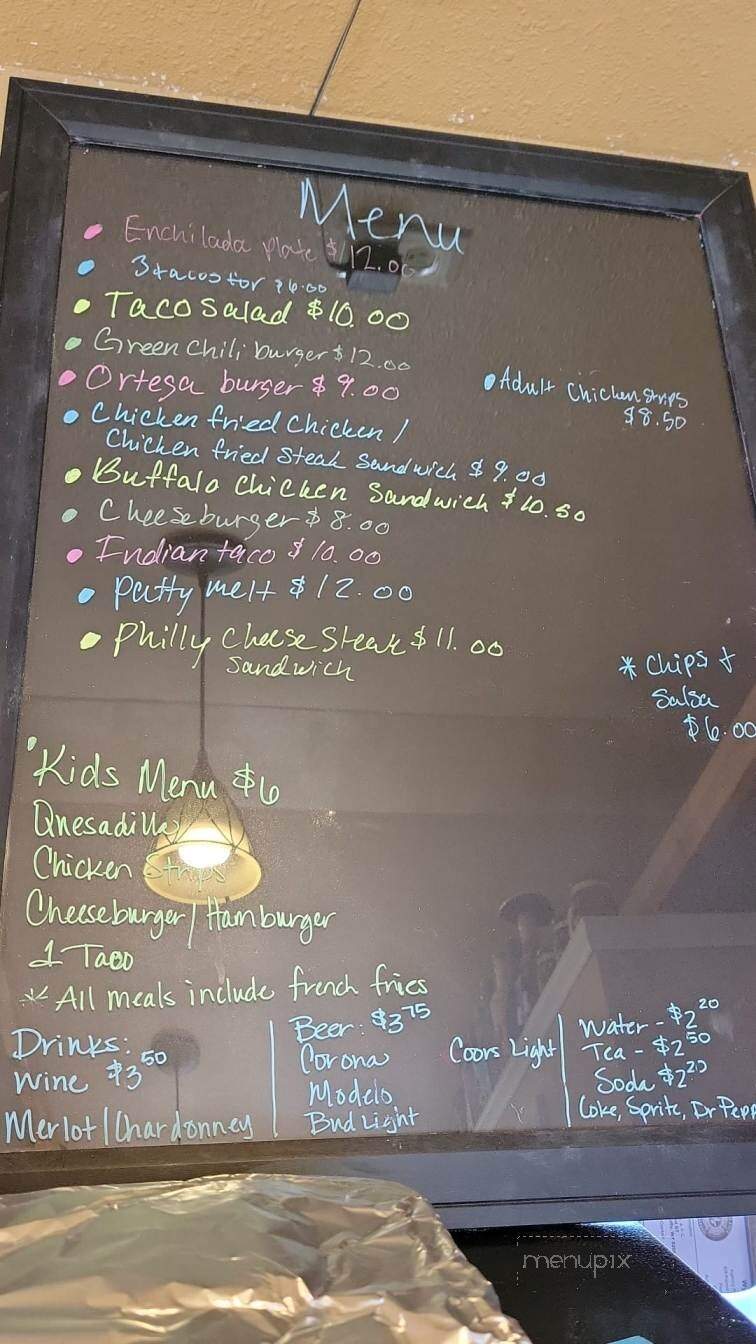 Menu
• Enchilada plate $12.00
• 3 tacos for $6.00
• Taco Salad $10.00
• Green Chili burger $12.00
• Ortega burger $9.00
• Adult Chicken Strips
$8.50
• Chicken fried Chicken /
Chicken fried Steak Sandwich $9.00
• Buffalo Chicken Sandwich $10.50
• Cheeseburger $8.00
• Indian taco $10.00
• Patty melt $12.00
• Philly Cheese Steak $11.00
Sandwich
* Chips &
Salsa
$6.00
• Kids Menu $6
Quesadilla
Chicken Strips
Cheeseburger/Hamburger
1 Taco
* All meals include french fries
Drinks:
Wine $3.50
Merlot/Chardonney
Beer: $3.75
Corona
Coors Light
Modelo
Bud Light
Water - $2.20
Tea - $2.50
Soda $2.20
Coke, Sprite, Dr Pepp
menupix